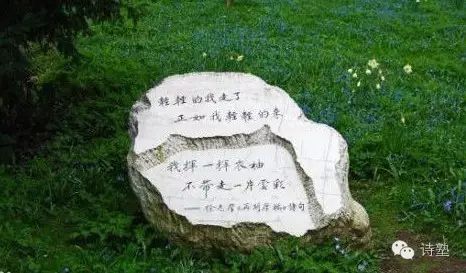 轻轻的我走了
正如我轻轻的来
我挥一挥衣袖
不带走一片云彩
——徐志摩《再别康桥》诗句
诗塾